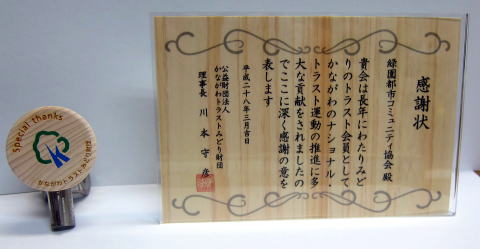 感謝状
緑園都市コミュニティ協会 殿
貴会は長年にわたりみど
りのトラスト会員として
かながわのナショナル・
トラスト運動の推進に多
大な貢献をされましたの
でここに深く感謝の意を
表します
平成二十八年三月吉日
公益財団法人
かながわトラストみどり財団
理事長 川本守彦
Special thanks
かながわトラストみどり財団